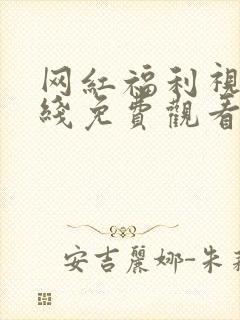 网红福利視
綫免費觀看
安吉麗娜-朱